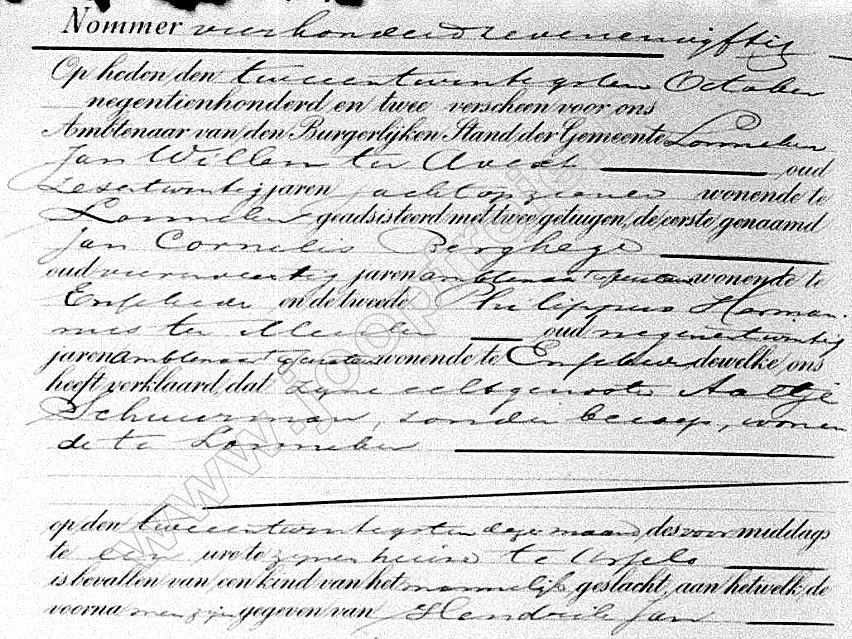 Nommer vierhonderd zevenenvijftig
Op heden den tweeentwintigsten October
negentienhonderd en twee verscheen voor ons
Ambtenaar van den Burgerlijken Stand, der Gemeente Lonneker
Jan Willem ter Avest oud
zesentwintig jaren wonende te
Lonneker geadsisteerd met twee getuigen, de eerste genaamd
Jan Cornelis Berghege
oud vierenveertig jaren ambtenaar ter secretarie wonende te
Enschede en de tweede Philippus Harman-
nus ter Meulen oud negenentwintig
jaren ambtenaar ter secretarie wonende te Enschede dewelke ons
heeft verklaard, dat zijne echtgenoote Aaltje
Schuurman, zonder beroep, wonen
de te Lonneker
op den tweeentwintigsten dezer maand, des voormiddags
te een ure te zijnen huize te Usselo
is bevallen van een kind van het mannelijk geslacht, aan hetwelk de
voornamen zijn gegeven van Hendrik Jan